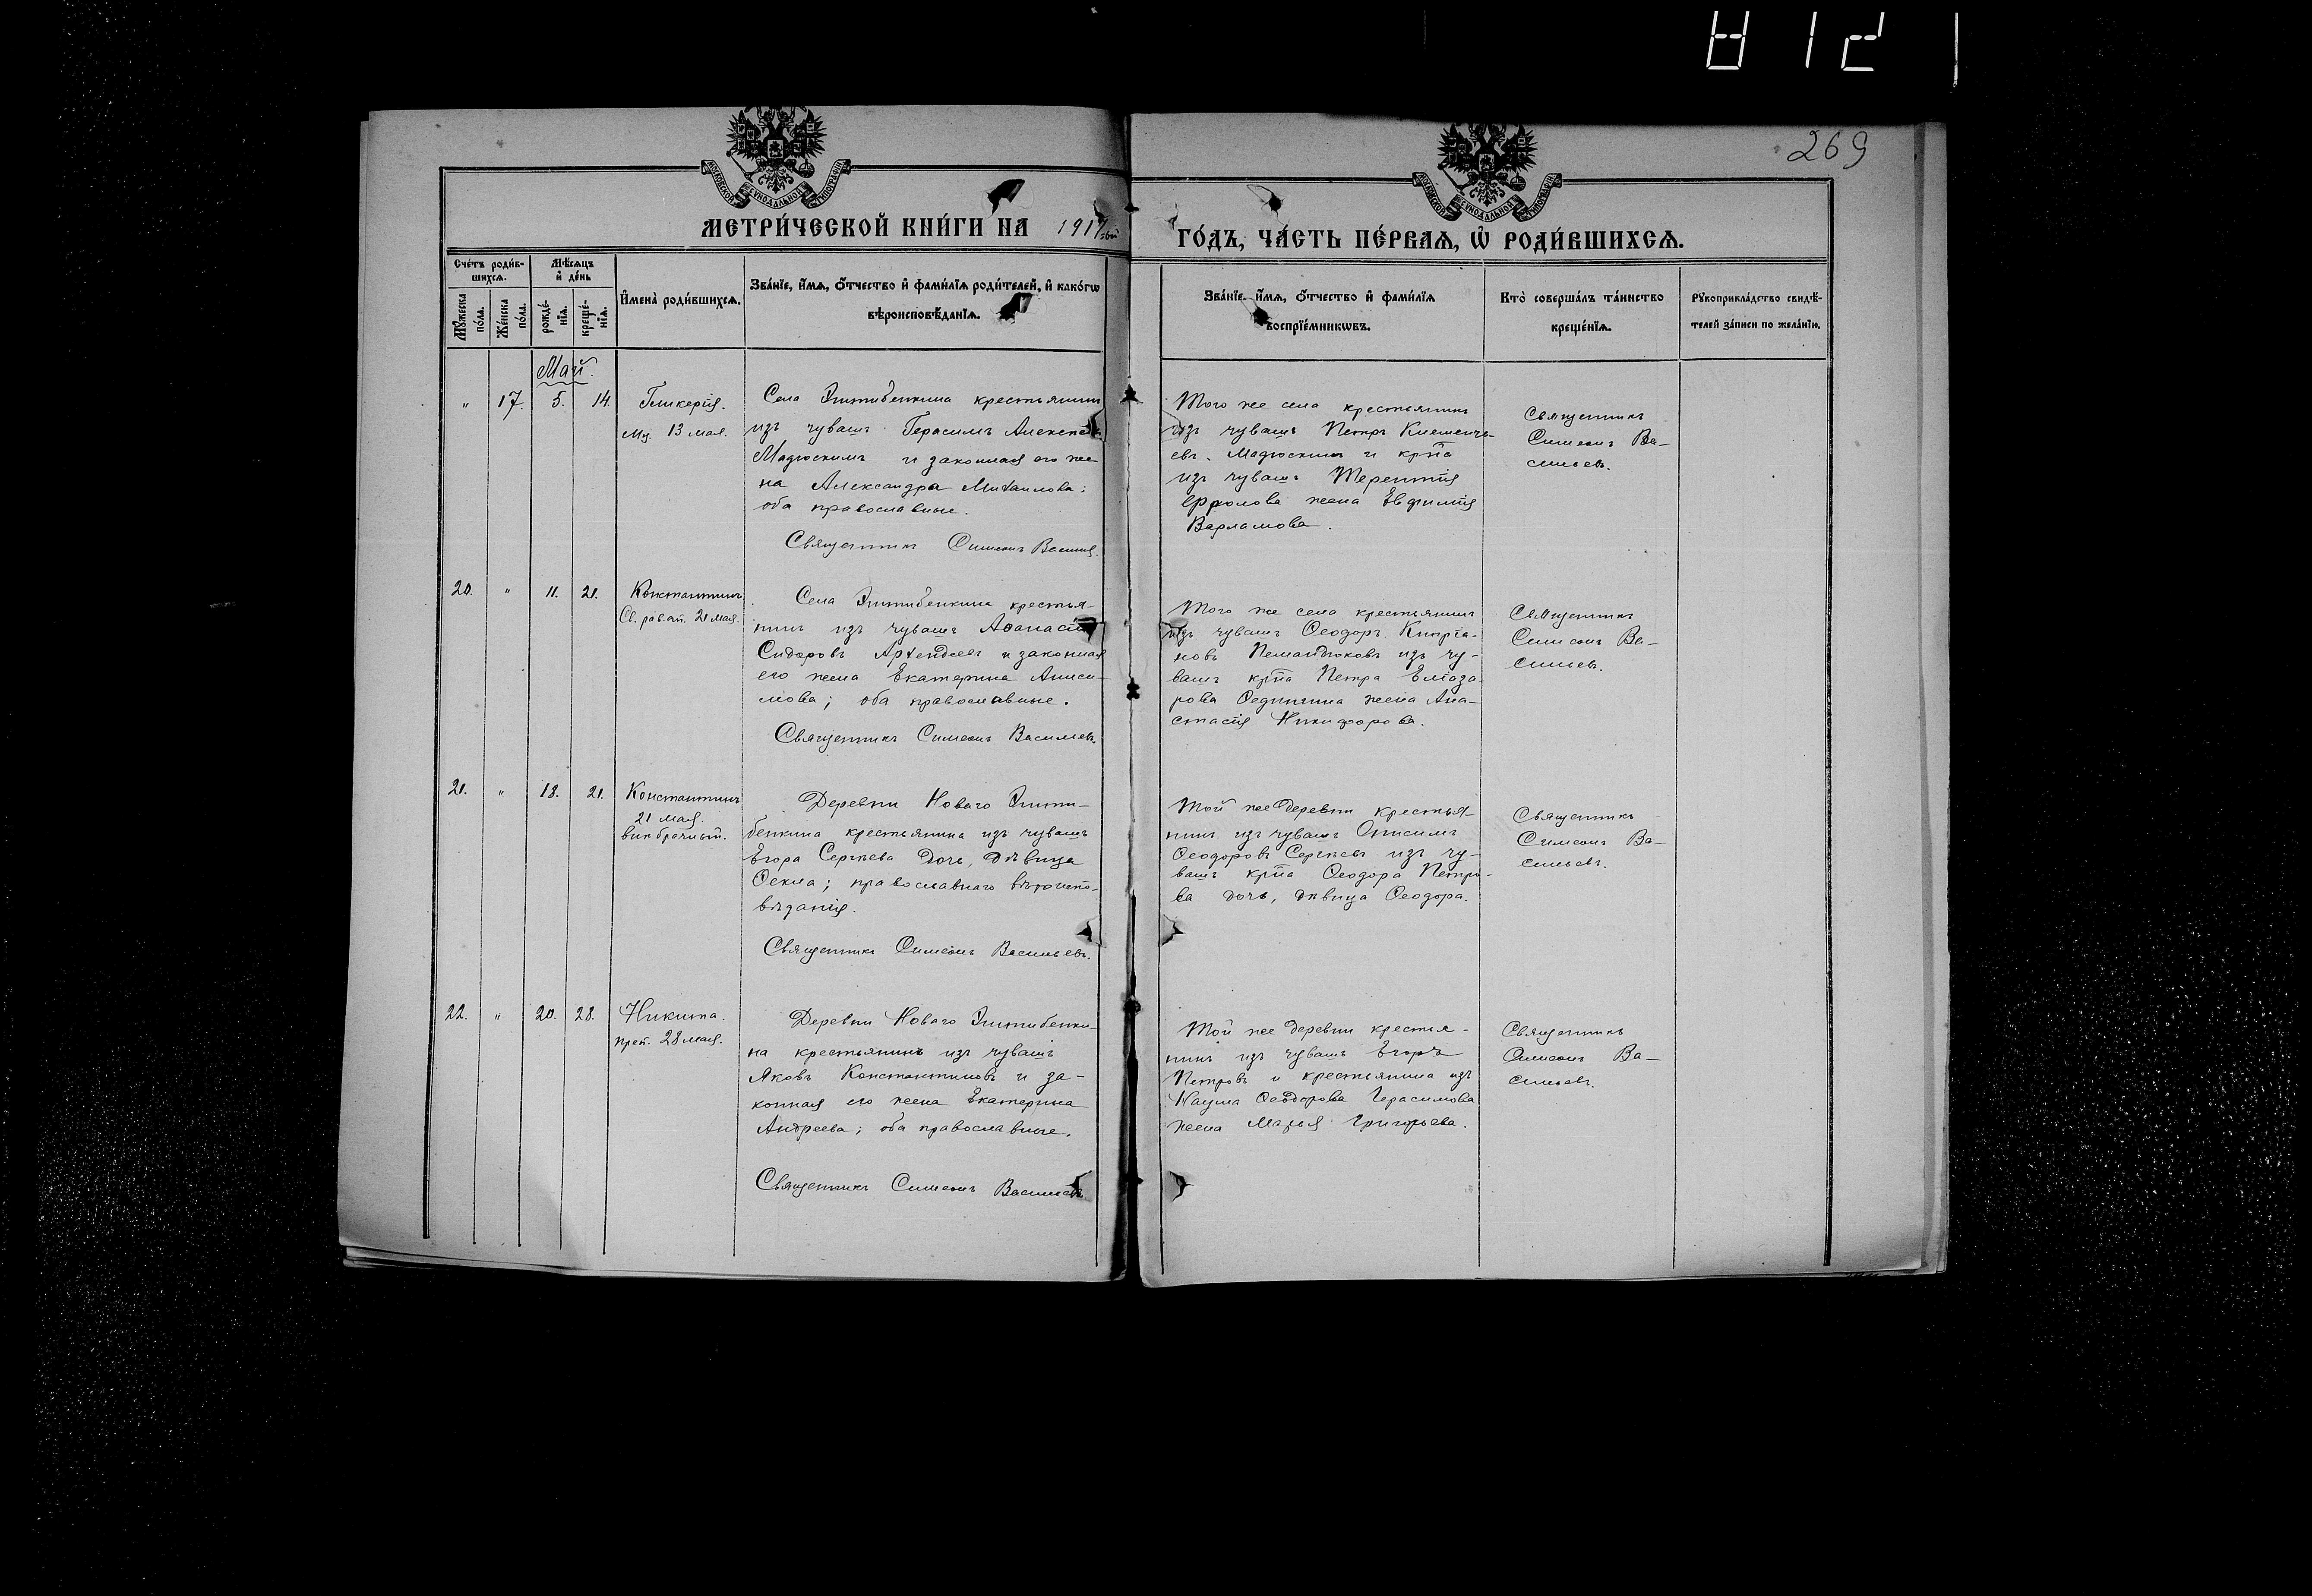 269
МОСКОВСКОЙ СѴНОДАЛЬНОЙ ТИПОГРАФІИ
МОСКОВСКОЙ СѴНОДАЛЬНОЙ ТИПОГРАФІИ
МЕТРИ́ЧЕСКОЙ КНИ́ГИ НА 1917-ый ГО́ДЪ, ЧА́СТЬ ПЕ́РВАѦ, Ѡ РОДИ́ВШИХСѦ.
Сче́тъ роди́в-
шихсѧ.
Мѣ́сѧцъ
и҆ де́нь
Мꙋжеска
по́ла.
Же́нска
по́ла.
рожде́-
нїѧ.
креще́-
нїѧ.
И҆мена̀ роди́вшихсѧ.
Зва́нїе, и҆́мѧ, ѻ҆́тчество и҆ фами́лїѧ роди́телей, и҆ како́гѡ
вѣроисповѣ́данїѧ.
Зва́нїе, и҆́мѧ, ѻ҆́тчество и҆ фами́лїѧ
воспрїе́мникѡвъ.
Кто̀ соверша́лъ та́инство
креще́нїѧ.
Рꙋкоприкла́дство свидѣ́-
телей за́писи по жела́нїю.
Май.
" 17. 5. 14.
Гликерія.
Му. 13 мая.
Села крестьянинъ
изъ чувашъ Герасимъ
Мадюскинъ и законная его же-
на Александра Михаилова;
оба православные.
Священникъ Симеонъ
Того же села крестьянинъ
изъ чувашъ Петръ Клементь-
евъ Мадюскинъ и крⷭ҇на
изъ чувашъ Терентія
Фролова жена Евфимія
Варламова.
Священникъ
Симеонъ Ва-
сильевъ.
20. " 11. 21.
Константинъ
Св. рав. ап. 21 мая.
Села крестья-
нинъ изъ чувашъ Аѳанасій
Сидоровъ и законная
его жена Екатерина Аниси-
мова; оба православные.
Священникъ Симеонъ Васильевъ.
Того же села крестьянинъ
изъ чувашъ Ѳеодоръ Кипріа-
новъ изъ чу-
вашъ Петра Елеаза-
рова жена Ана-
стасія Никифорова.
Священникъ
Симеонъ Ва-
сильевъ.
21. " 18. 21.
Константинъ
21 мая.
внѣбрачный.
Деревни Новаго
крестьянина изъ чувашъ
Егора Сергѣева дочь, дѣвица
Ѳекла; православнаго вѣроиспо-
вѣданія.
Священникъ Симеонъ Васильевъ.
Той же деревни крестья-
нинъ изъ чувашъ Онисимъ
Ѳеодоровъ Сергѣевъ изъ чу-
вашъ Ѳеодора Петро-
ва дочь, дѣвица Ѳеодора.
Священникъ
Симеонъ Ва-
сильевъ.
22. " 20. 28.
Никита.
преп. 28 мая.
Деревни Новаго
на крестьянинъ изъ чувашъ
Яковъ Константиновъ и за-
конная его жена Екатерина
Андреева; оба православные.
Священникъ Симеонъ Васильевъ
Той же деревни крестья-
нинъ изъ чувашъ Егоръ
Петровъ и крестьянина изъ
Наума Ѳеодорова Герасимова
жена Марья Григорьева.
Священникъ
Симеонъ Ва-
сильевъ.